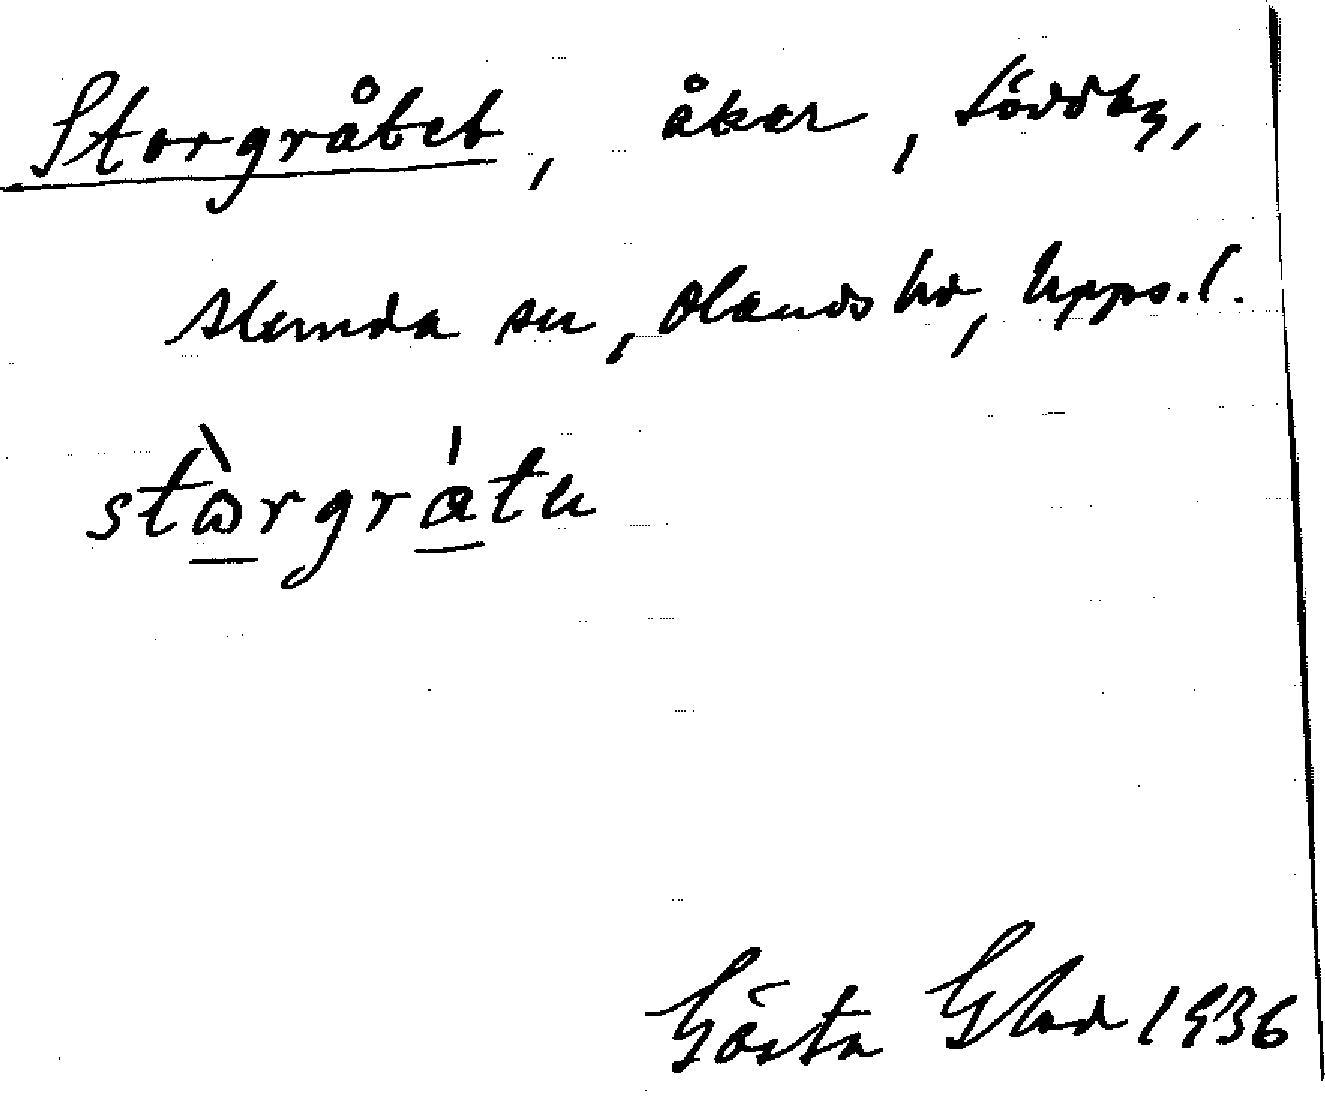 Storgråtet, åker, Söddby,
Alunda sn, Olands hd, Upps. l.
stὼrgrátu
Gösta Glad 1936